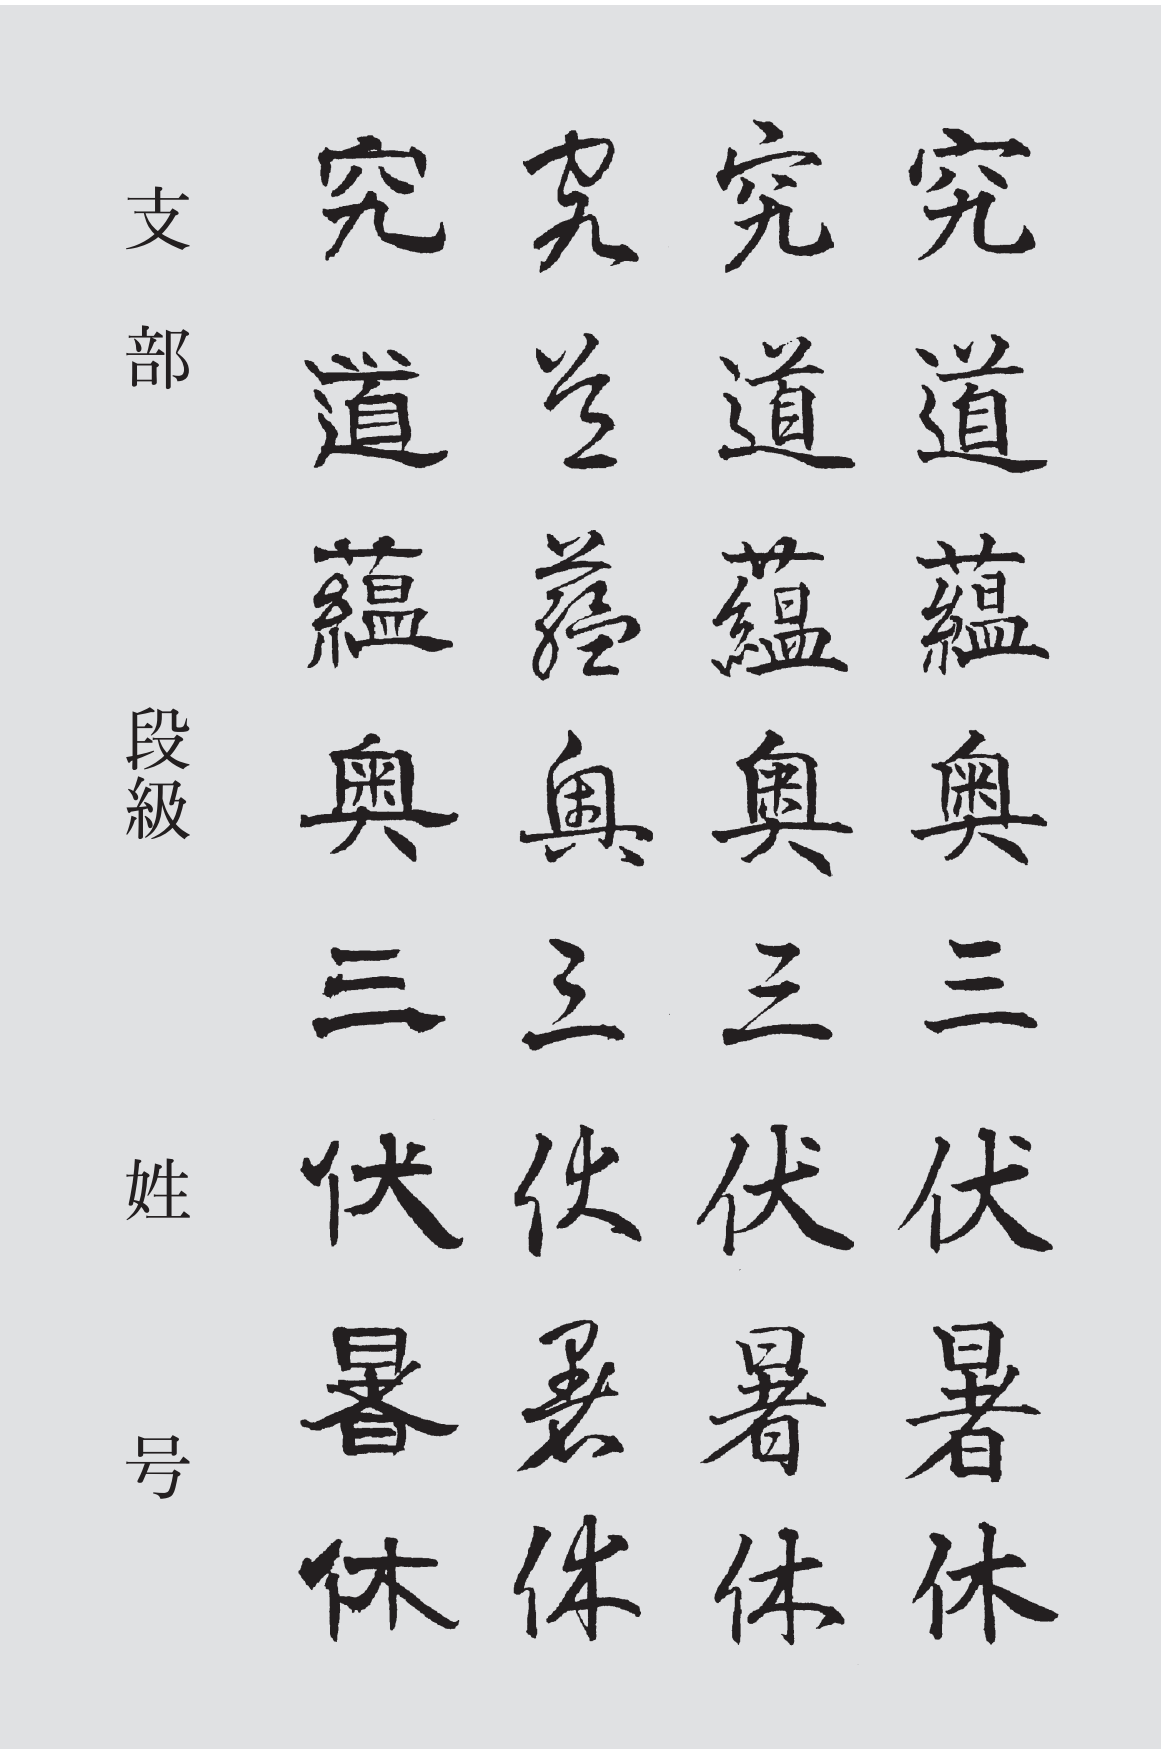 究道蘊奥三伏暑休
究道蘊奥三伏暑休
究道蘊奥三伏暑休
究道蘊奥三伏暑休
支部 段級 姓 号